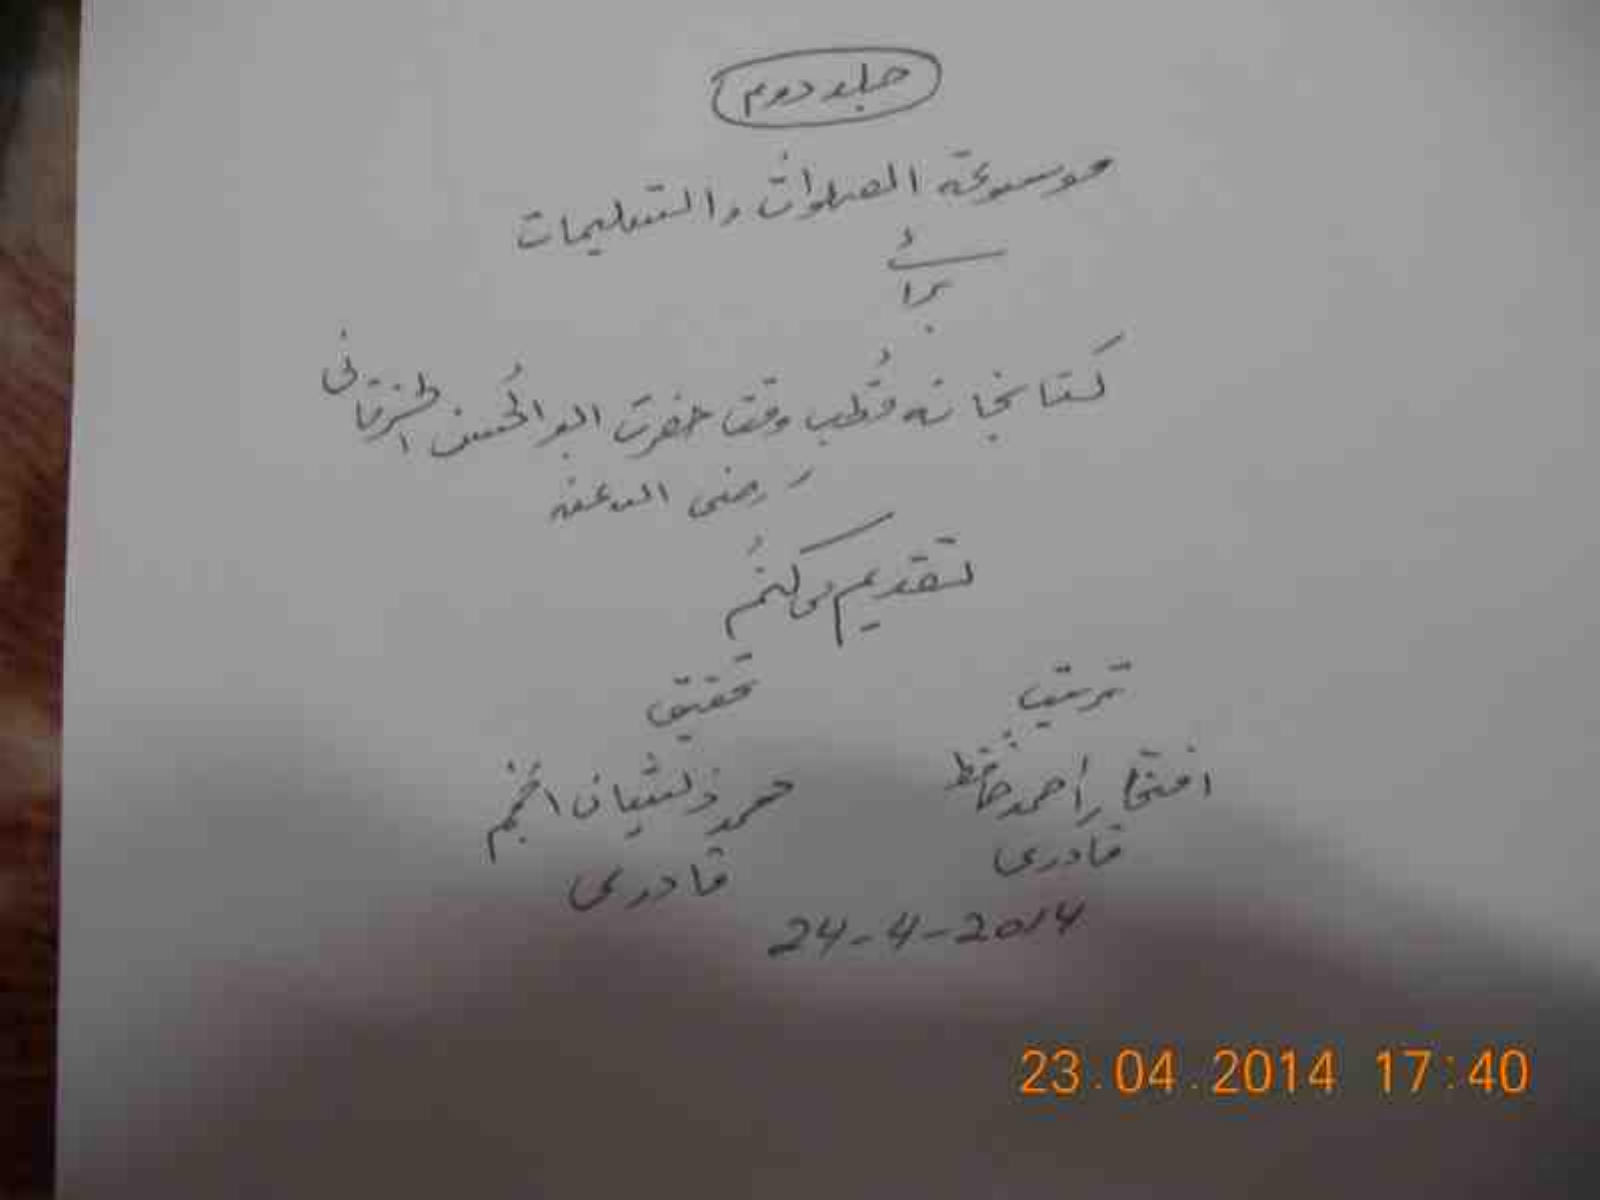 جلد دوم
موسوعة الصلوات والتسلیمات
برائے
کتابخانہ قُطب وقت حضرت ابو الحُسن الخرقانی
رضی اللہ عنہ
تقدیم می کنُم
ترتیب
تحقیق
افتخار احمد حافظ
قادری
محمد ذیشان انجم
قادری
24-4-2014
23.04.2014 17:40